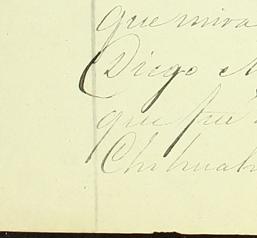 que mira
Diego
que fue
Chihuah